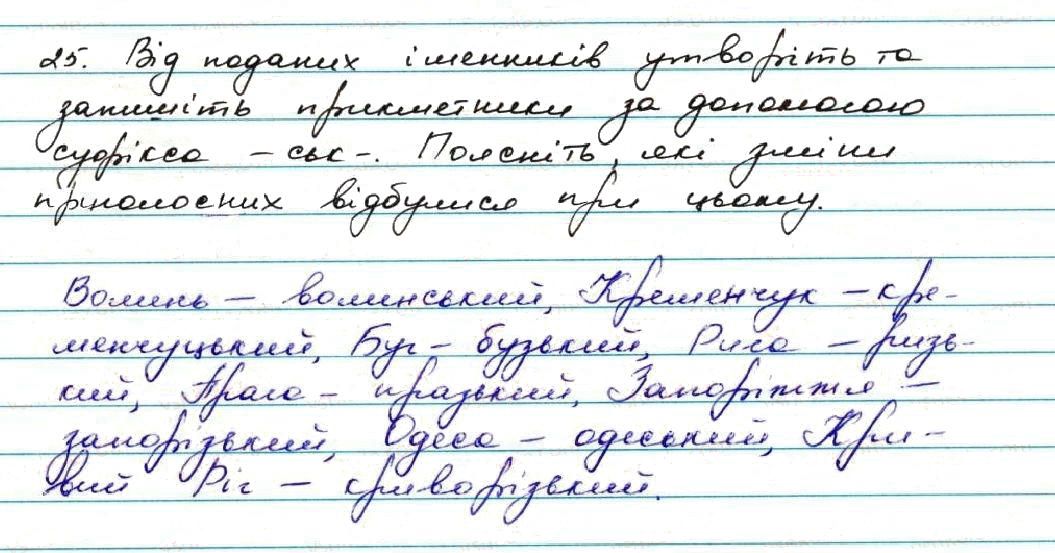 25. Від поданих іменників утворіть та
запишіть прикметники за допомогою
суфікса -ськ-. Поясніть, які зміни
приголосних відбулися при цьому.
Волинь – волинський, Кременчук – кре-
менчуцький, Буг – бузький, Рига – ризь-
кий, Прага – празький, Запоріжжя –
запорізький, Одеса – одеський, Кри-
вий Ріг – криворізький.